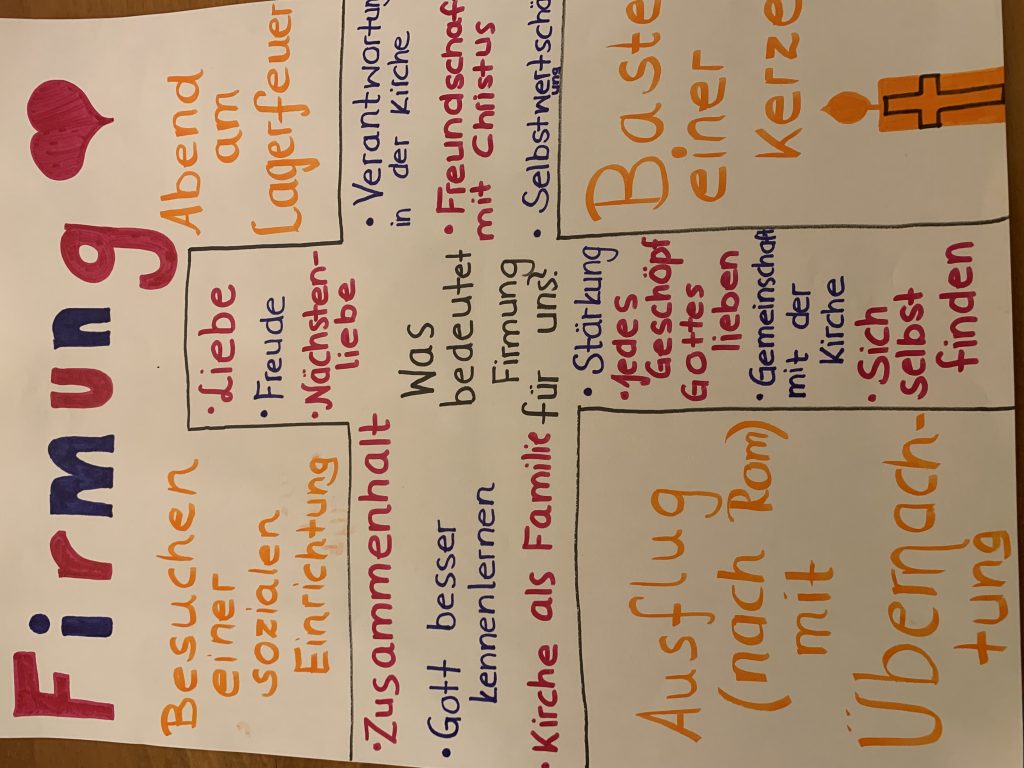 Firmung
Besuchen
einer
sozialen
Einrichtung
Abend
am
Lagerfeuer
• Liebe
• Freude
• Nächsten-
liebe
• Zusammenhalt
• Gott besser
kennenlernen
• Kirche als Familie
Was
bedeutet
Firmung
für uns?
• Verantwortun
in der Kirche
• Freundschaf
mit Christus
• Selbstwertschä
ung
• Stärkung
• Jedes
Geschöpf
Gottes
lieben
• Gemeinschaft
mit der
Kirche
• Sich
selbst
finden
Ausflug
(nach Rom)
mit
Übernach-
tung
Baste
einer
Kerze